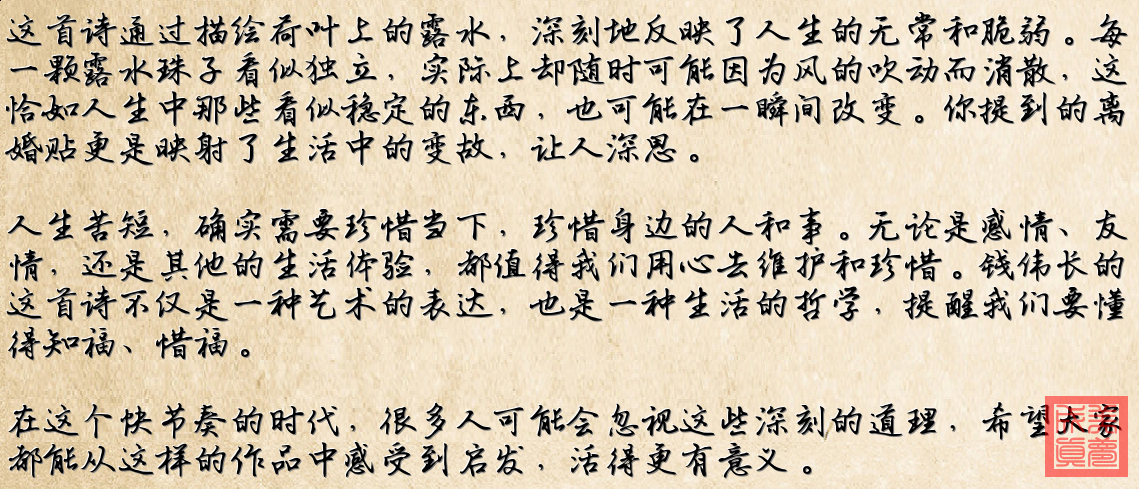 这首诗通过描绘荷叶上的露水，深刻地反映了人生的无常和脆弱。每
一颗露水珠子看似独立，实际上却随时可能因为风的吹动而消散，这
恰如人生中那些看似稳定的东西，也可能在一瞬间改变。你提到的离
婚贴更是映射了生活中的变故，让人深思。
人生苦短，确实需要珍惜当下，珍惜身边的人和事。无论是感情、友
情，还是其他的生活体验，都值得我们用心去维护和珍惜。钱伟长的
这首诗不仅是一种艺术的表达，也是一种生活的哲学，提醒我们要懂
得知福、惜福。
在这个快节奏的时代，很多人可能会忽视这些深刻的道理，希望大家
都能从这样的作品中感受到启发，活得更有意义。